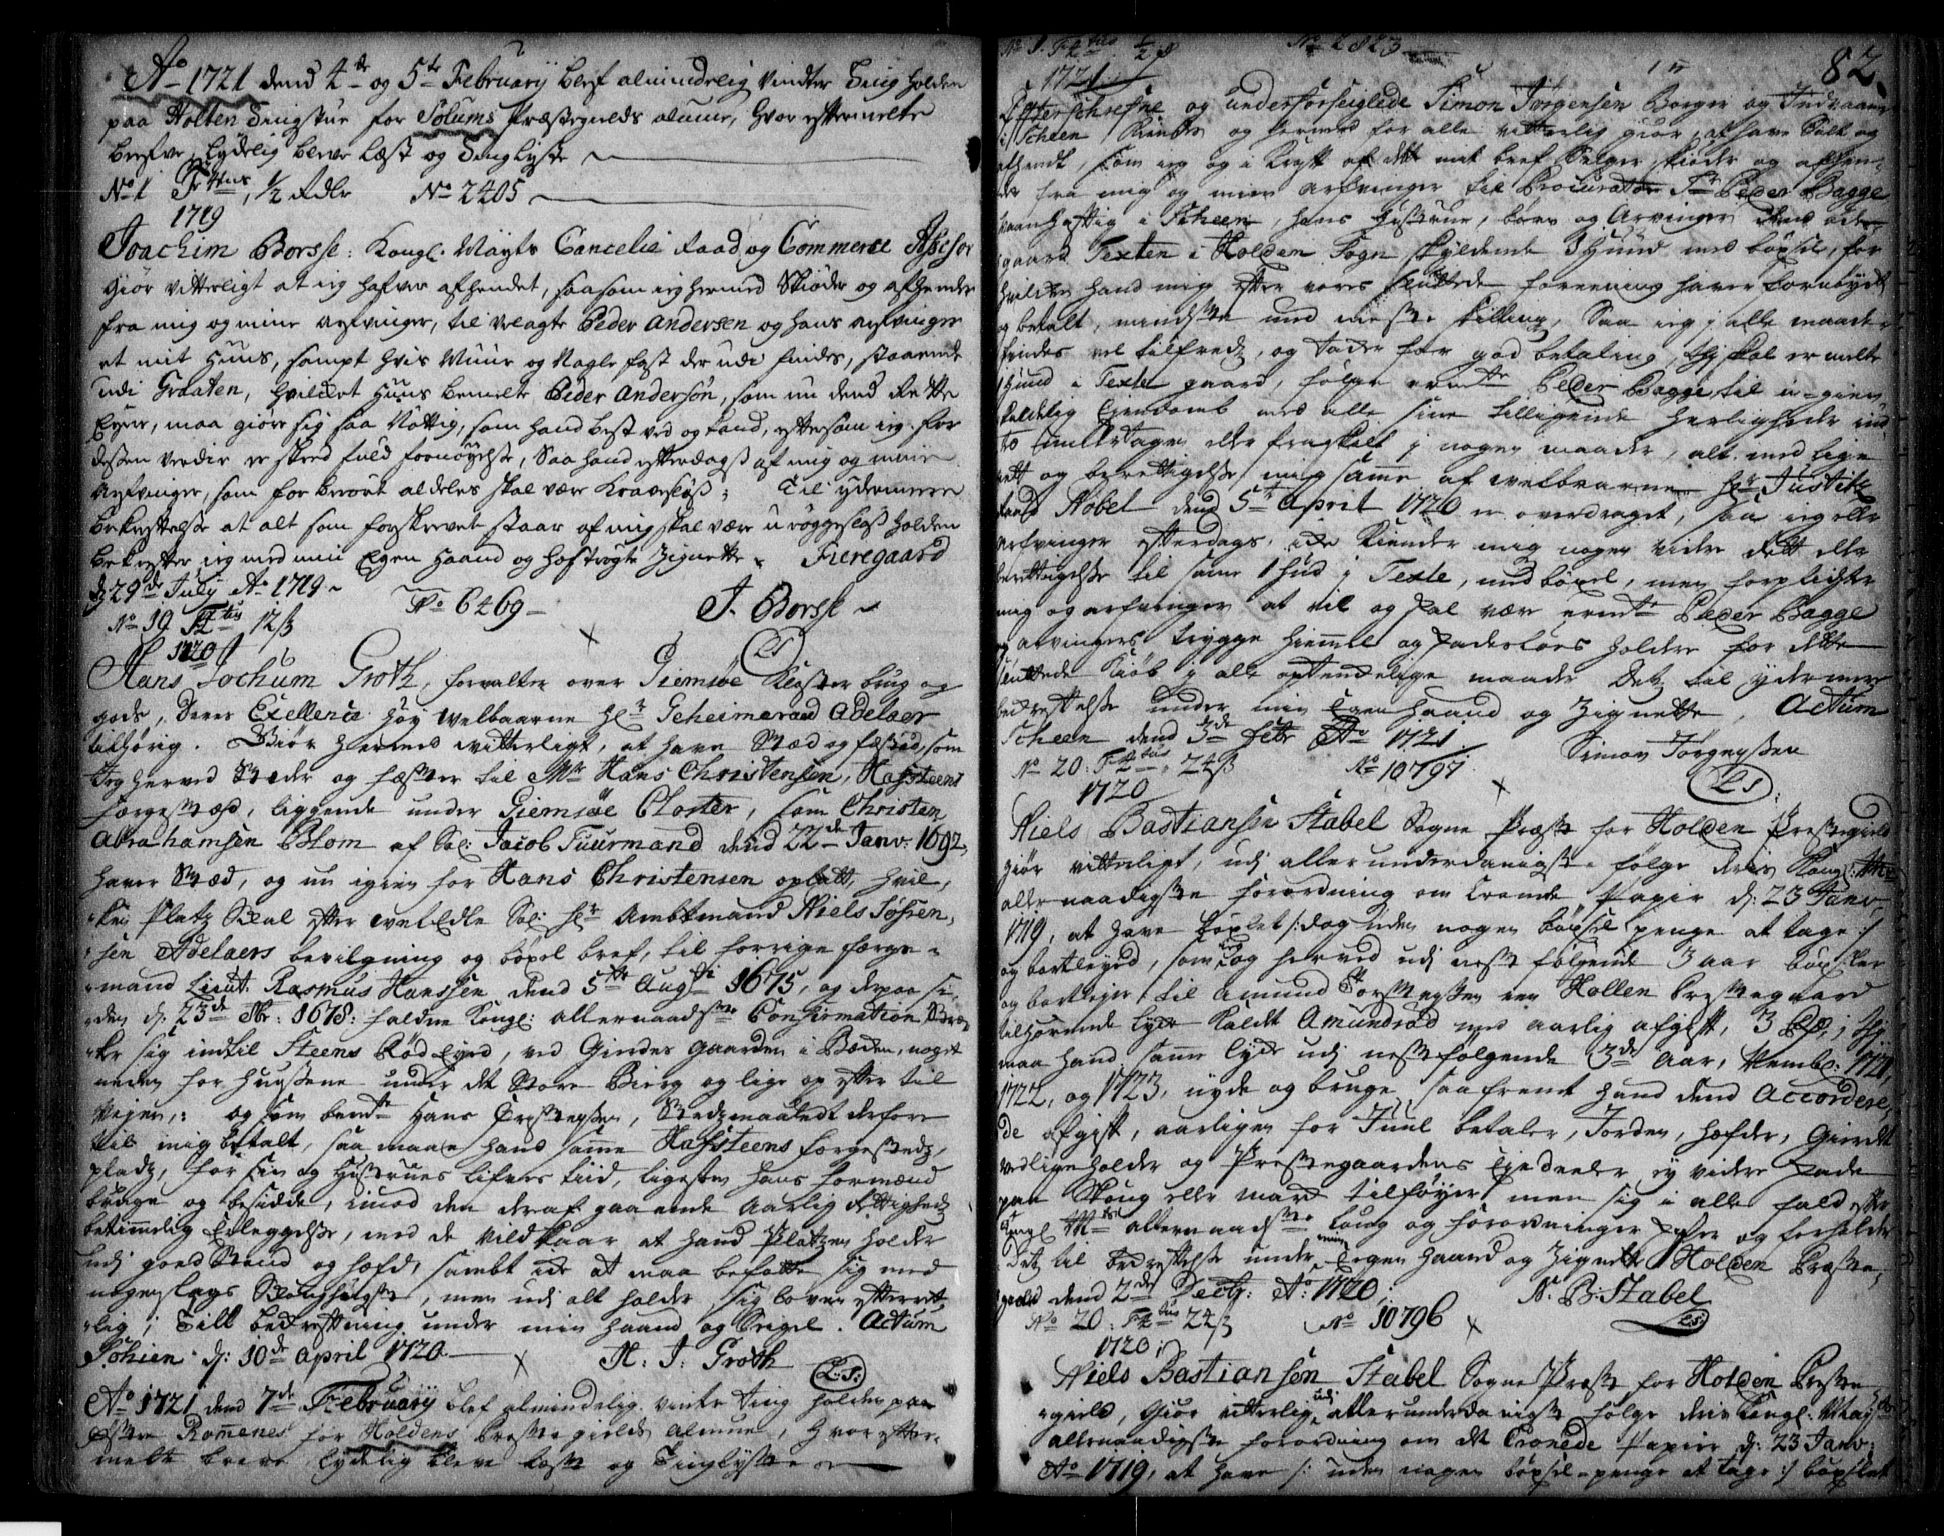 Ao 1721 dend 4de og 5te Februarij blef almindelig Vindter Ting holden
paa Holten Tingstue for Solums Præstegields almue, hvor eftermelte
brefve lydelig bleve læst og Tinglyste
No 1 Fr 4tus, 1/2 Rdlr No 2405
1719
Joachim Borsse: Kongl. Mayts Cancelie Raad og Commerce Assessor
Giør vitterligt at ieg hafver afhendet, saasom ieg hermed Skiøder og afhender
fra mig og mine arfvinger, til velagte Peder Andersen og hans arfvinger
et mit Huus, sampt hvis Muur og Nagle fast der udi findes, staaende
udi Graaten, hvilcket Huus bemelte Peder Andersøn, som nu dend Rette
Eyer, maa giøre sig saa Nøttig, som hand best ved og kand, eftersom ieg for
dessen verdie er skeed fuld fornøyelse, Saa hand efterdags af mig og mine
Arfvinger, som for berørt aldeles skal være Kravesløs; Til ydermere
bekreftelse at alt som forskrevet staar af mig skal være u-ryggesløs holden
bekrefter ieg med min Egen Haand og hostrøgte Zignette. Fieregaard
d 29de July Ao 1719
No 19 F 4tus 12 ß No 6469 J. Borsse
1720 LS
Hans Jochum Groth, forvalter over Giemsøe Kloster brug og
gods, Deres Exellence Høy Welbaarne Hr Geheimeraad Adelaer
tilhørig. Giør hermed vitterligt, at have Stæd og fæsted, som
Jeg herved Steder og fæster til Mr Hans Christensen, Hafsteens
færgestæd, liggende under Giemsøe Closter, som Christen
Abrahamsen Blom af Sal: Jacob Tuurmand dend 22de Janv. 1692,
haver Stæd, og nu igien for Hans Christensen oplatt, hvil,
ken Platz Skal efter welEdle Sal: Hr Ambtmand Niels Søfren,
sen Adelaers bevilgning og bøxel bref, til forrige færge-
mand Lieut. Rasmus Hanssen dend 5te Augsti 1675, og derpaa si,
den d. 23de 1678: faldne Kongl: allernaadste Confirmation Stræk
ke sig indtil Steens Rød Eyed, ved Gierdes gaarden i Bøden, noget
neden for huusene under det Store Bierg og lige op efter til
Vejen,: og som bemte Hans Christensen, Stedzmaaledt derfore
til mig betalt, saa maae hand samme Hafsteens færgestedz,
pladz, for sin og Hustrues lifves tiid, ligesom hans formænd
bruge og besidde, imod den deraf gaaende Aarlig Rettigheds
betimmelig Erleggelse, med de Vildkaar at hand Platzen holder
udi goed Stand og hefd, sambt icke at maa befatte sig med
nogenslags, men udi alt holder sig loven efterret,
lig; Till bekreftning under min haand og Segel. Actum
Schien d: 10de April 1720. H. J. Groth
L.S.
Ao 1721 dend 7de Februarij blef almindelig vinter Ting holden paa
Østre Romenes for Holdens Præstegields Almue, hvor efter,
melte breve lydelig bleve læste og Tinglyste
No 1. F 4tus 1/2 No 2823 82.
1721
Efterschrefne og underforseiglede Simon Jørgensen Borger og Indvaaner
i Scheen Kiendes og hermed for alle vitterlig giør, at have Solt og
afhendt, som ieg og i Kraft af dette mit bref Selger, skiøder og afhen
der fra mig og mine Arfvinger til Procurator Sr Peder Bagge
vaanhaftig i Scheen, hans Hustrue, børn og Arvinger dend øde
gaard Texten i Holden Sogn skyldende 1 Huud med bøxel, for
hvilken hand mig efter vores sluttede foreening haver fornøyet
og betalt, mindste med meste skilling, Saa ieg i alle maader
kiendes vel tilfreds, og tacker for god betaling, thj skal ermelte
1 Huud i Texte gaard, følge ermte Peder Bagge til u-gien
kaldelig Ejendomb med alle sine tilligende herligheder in
tet undertagen eller frasKilt i nogen maader, alt med lige
rett og berettigelse mig samme af welbaarne Hr Justitz
raad Nobel dend 5te April 1720 er overdraget, saa ieg eller
arfvinger efterdags icke Kiender mig nogen videre Rett eller
berettigelse til same 1 hud i Texte, med bøxel, men forpligter
mig og arfvinger at vil og skal være ermte Peder Bagge
og arvingers trygge hiemmel og skadesløs holdere for dette
sluttede Kiøb i alle optenkelige maader Detz til ydermere
bekreftelse under min Egen Haand og Zignette. Actum
Scheen dend 3de Febr Ao 1721 Simon Jørgensen
No 20: F 4tus, 24 ß No 10797 LS
1720
Niels Bastiansen Stabel Sogne Præst for Holden Præstegield
giør vitterligt, udj allerunderdanigste følge deris Kongl: Mts
allernaadigste forordning om Croende Papir d: 23 Janv,
1719, at have bøxlet /: dog uden nogen bøxsel penge at tage :/
og bortleyed, som ieg og herved udj neste følgende 3 aar bøxsler
og bortlejer til Amund Torstensen een Hollen Præstegaard
tilhørende Eyde Kaldt Amundrød med aarlig afgift, 3 Rd; thj
maa hand samme Eyde udj nestfølgende 3de Aar, Nembl: 1721,
1722, og 1723, nyde og bruge, saafremt hand dend Accordere,
de afgift, aarligen for Juul betaler, Jorden, hefder, Gierdet
vedligeholder og Præstegaardens Ejedeeler ey videre skade
paa Skoug eller mark tilføyer, men sig i alle fald efter
Kongl Mts allernaadste loug og forordninger retter og forholder
Detz til bekreftelse under min Egen haand og Zignette Holden Præste,
gield dend 2de Decbr: Ao 1720. N. B. Stabel
No 20: F 4tus 24 ß No 10796 LS
1720
Niels Bastiansen Stabel Sogne Præst for Holden Præste
gield, Giør vitterlig, udj allerunderdanigste følge deris Kongl: Mayts
allernaadigste forordning om det Cronede Papiir d: 23 Janv:
Ao 1719, at have /: uden nogen bøxsel-penge at tage :/ bøxslet